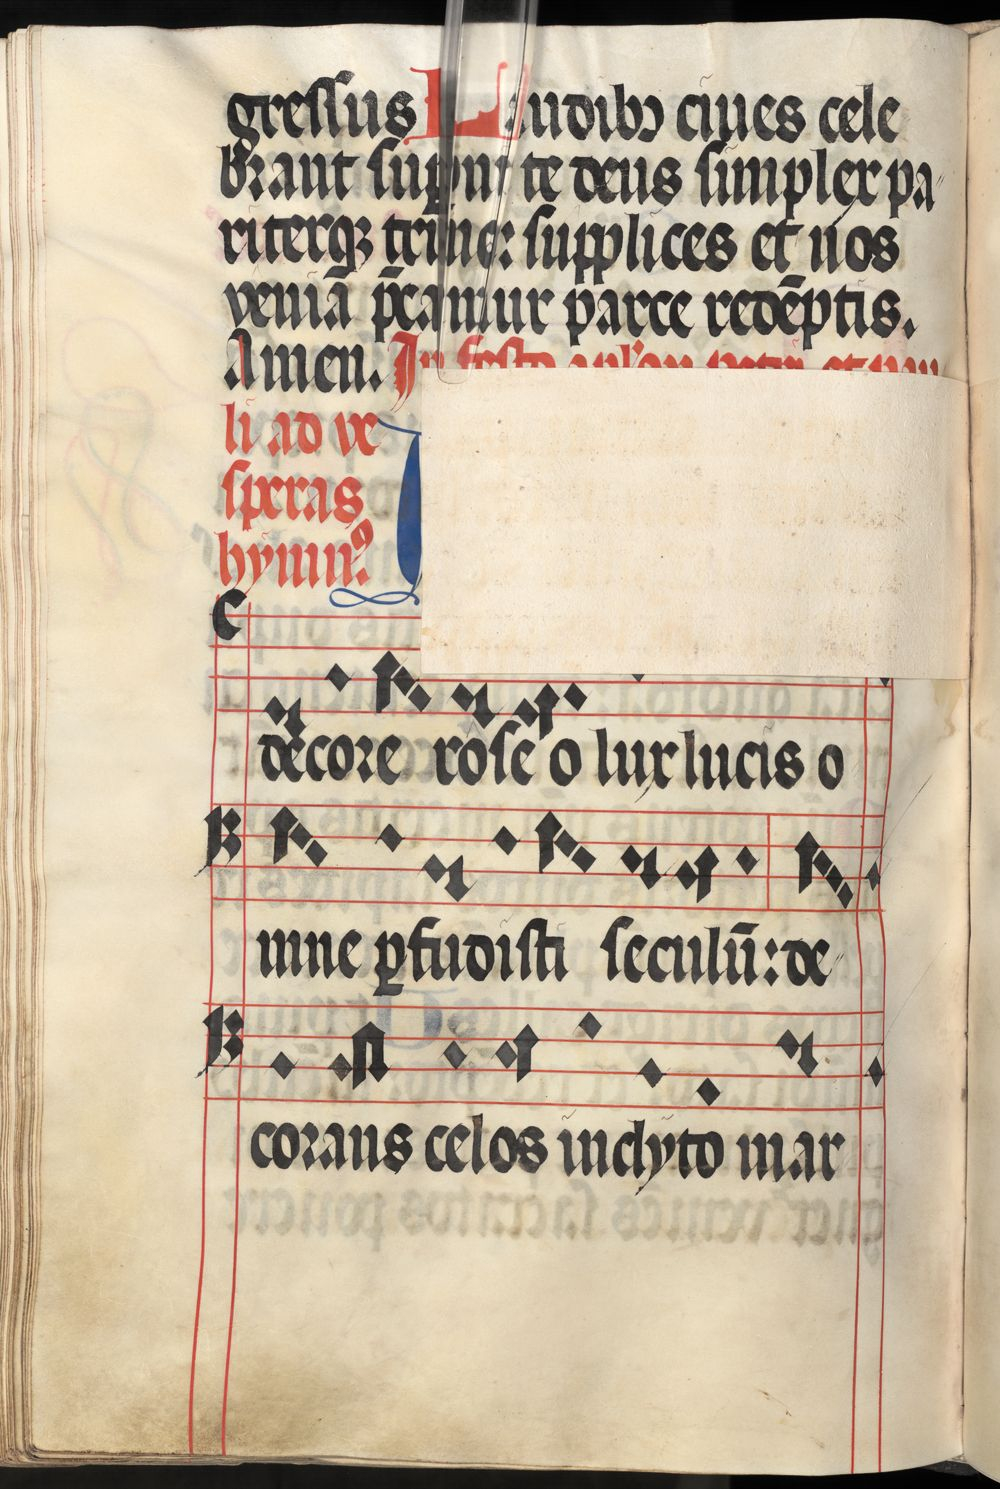 gressus Laudibꝰ ciues cele
brant suꝑni te deus simplex pa
riterqꝫ trine: supplices et nos
veniā p̄camur parce redēptis.
Amen. In festo aplꝝ petri et pau
li ad ve
speras
hymnꝰ
decore rose o lux lucis o
mne ꝑfudisti seculū: de
corans celos inclyto mar